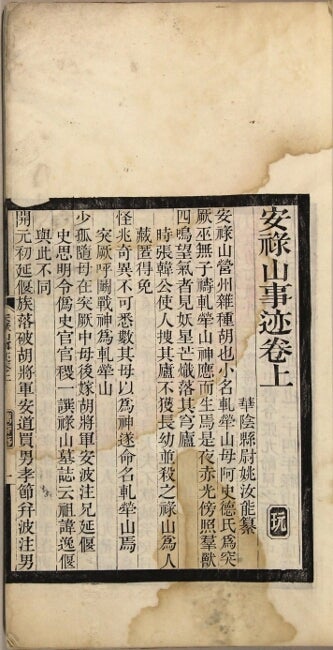 安祿山事迹卷上
華陰縣尉姚汝能纂
安祿山營州雜種胡也小名軋犖山母阿史德氏為突
厥巫無子禱軋犖山神應而生焉是夜赤光傍照羣獸
四鳴望氣者見妖星芒熾落其穹廬
時張韓公使人搜其廬不獲長幼並殺之祿山為人
藏匿得免
怪兆奇異不可悉數其母以為神遂命名軋犖山焉
突厥呼鬬戰神為軋犖山
少孤隨母在突厥中母後嫁胡將軍安波注兄延偃
史思明令僞史官官稷一譔祿山墓誌云祖諱逸偃
與此不同
開元初延偃族落破胡將軍安道買男孝節幷波注男
玩